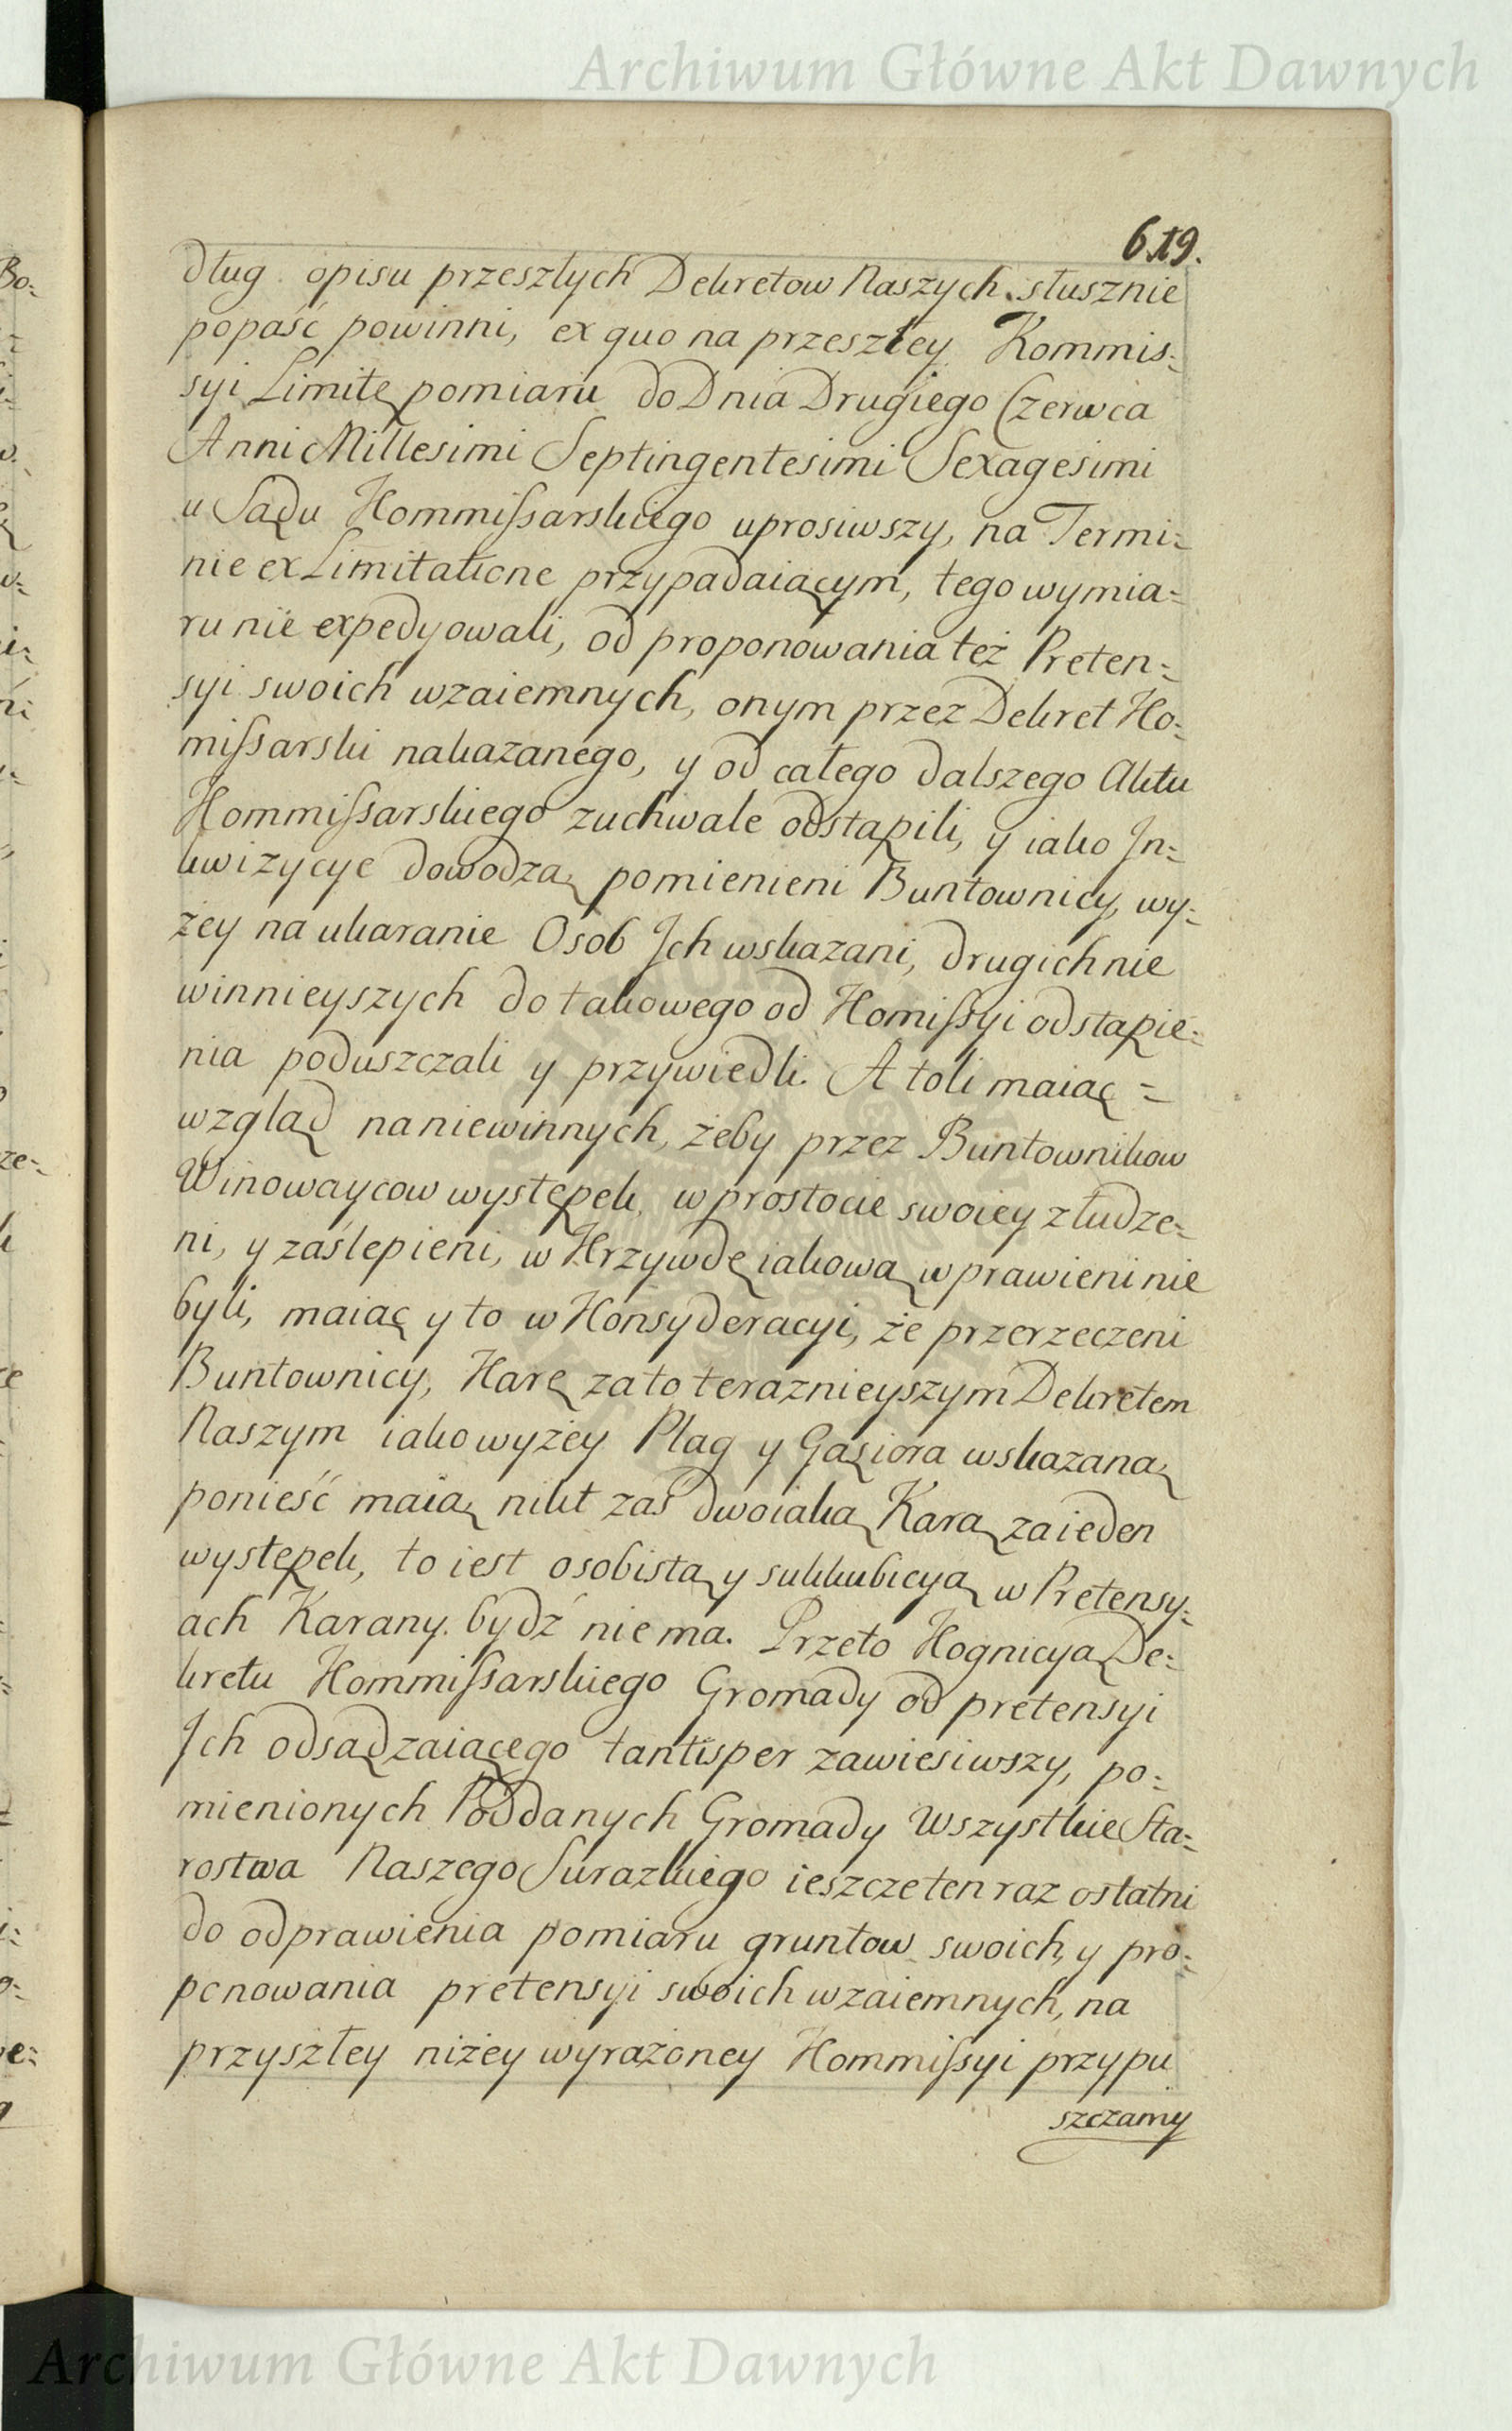 Archiwum Główne Akt Dawnych
619.
dług opisu przeszłych Dekretow Naszych słusznie
popaść powinni, ex quo na przeszłey Kommis=
syi Limitę pomiaru do Dnia Drugiego Czerwca
Anni Millesimi Septingentesimi Sexagesimi
u Sądu Kommissarskiego uprosiwszy, na Termi=
nie ex Limitatione przypadaiącym, tego wymia=
ru nie expedyowali, od proponowania też Preten=
syi swoich wzaiemnych, onym przez Dekret Ko=
missarski nakazanego, y od całego dalszego Aktu
Kommissarskiego zuchwale odstąpili, y iako In=
kwizycye dowodzą pomienieni Buntownicy, wy=
żey na ukaranie Osob Jch wskazani, drugich nie
winnieyszych do takowego od Komissyi odstąpie=
nia poduszczali y przywiedli. A toli maiąc =
wzgląd na niewinnych, żeby przez Buntownikow
Winowaycow występek, w prostocie swoiey złudze=
ni, y zaślepieni, w Krzywdę iakową wprawieni nie
byli, maiąc y to w Konsyderacyi, że przerzeczeni
Buntownicy, Karę za to teraznieyszym Dekretem
Naszym iako wyżey Plag y Gąsiora wskazaną
ponieść maią, nikt zaś dwoiaką Karą za ieden
występek, to iest osobistą y sukkubicyą w Pretensy=
ach Karany bydź nie ma. Przeto Kognicyą De=
kretu Kommissarskiego Gromady od pretensyi
Jch odsądzaiącego tantisper zawiesiwszy, po=
mienionych Poddanych Gromady Wszystkie Sta=
rostwa Naszego Surazkiego ieszcze ten raz ostatni
do odprawienia pomiaru gruntow swoich, y pro=
ponowania pretensyi swoich wzaiemnych, na
przyszłey niżey wyrażoney Kommissyi przypu
szczamy
Archiwum Główne Akt Dawnych